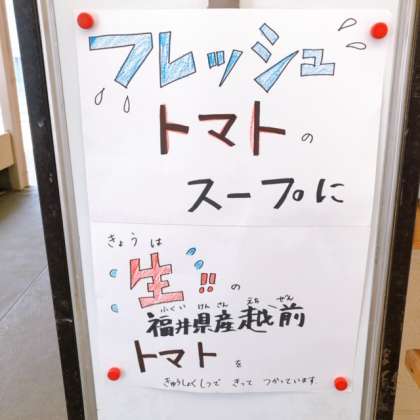 フレッシュ
トマトの
スープに
きょうは
生!!の
ふくい けん さん えち ぜん
福井県産越前
トマトを
きゅうしょくしつで きって つかっています